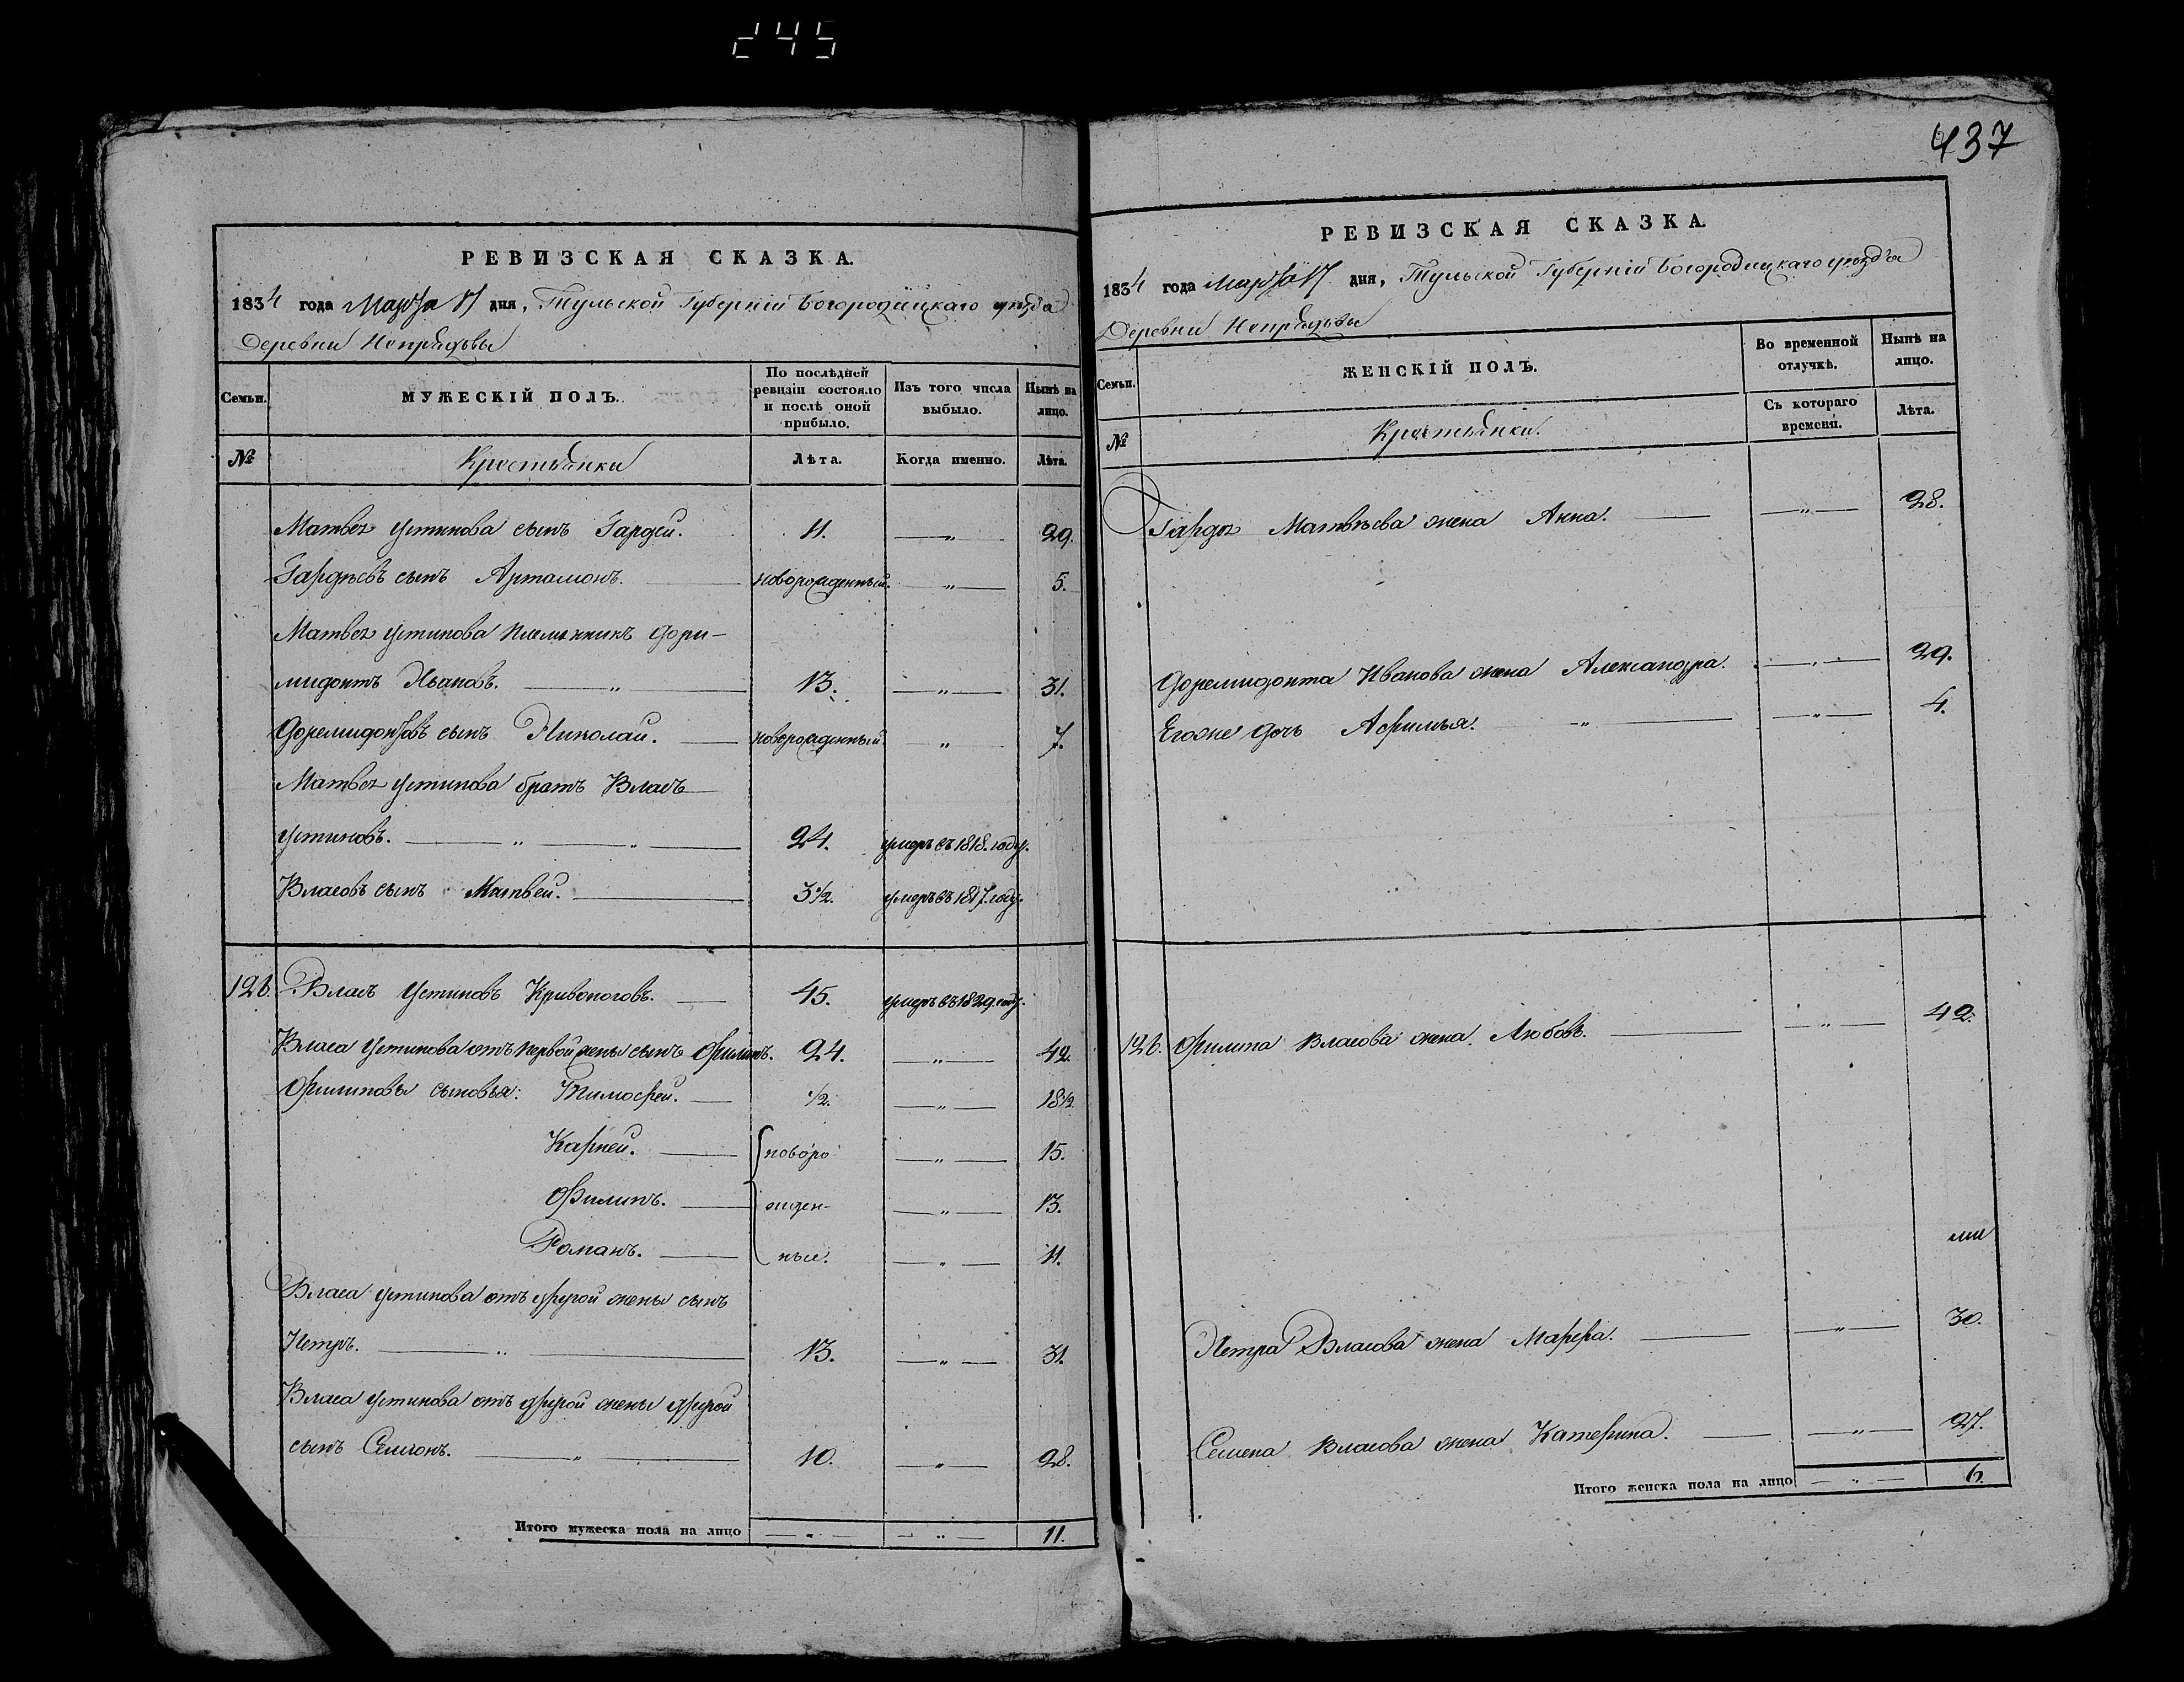 245
РЕВИЗСКАЯ СКАЗКА.
1834 года Марта 17 дня, Тульской Губерніи Богородицкаго уѣзда
Деревни Непрядвы
Семьи. МУЖЕСКІЙ ПОЛЪ. По послѣдней ревизіи состояло и послѣ оной прибыло. Изъ того числа выбыло. Нынѣ на лицо.
№ Крестьянки Лѣта. Когда именно. Лѣта.
Матвея Устинова сынъ Гардей. 11. — „ — 29.
Гардѣевъ сынъ Артамонъ. — новорожденный. — „ — 5.
Матвея Устинова племянникъ Дори-
мидонтъ Ивановъ. — „ — 13. — „ — 31.
Доремидонтовъ сынъ Николай. — новорожденный. — „ — 7.
Матвея Устинова братъ Власъ
Устиновъ. — „ — „ — 24. умеръ въ 1818. году.
Власовъ сынъ Матвей. — 3½. умеръ въ 1817. году.
126. Власъ Устиновъ Кривоноговъ. — 45. умеръ въ 1829 году.
Власа Устинова отъ первой жены сынъ Филипъ. 24. — „ — 42.
Филиповы сыновья: Тимофей. — ½. — „ — 18½.
Карней. — новоро — „ — 15.
Филипъ. — жден- — „ — 13.
Романъ. — ные. — „ — 11.
Власа Устинова отъ другой жены сынъ
Петръ. — „ — 13. — „ — 31.
Власа Устинова отъ другой жены другой
сынъ Семіонъ. — „ — 10. — „ — 28.
Итого мужеска пола на лицо — „ — — „ — 11.
437
РЕВИЗСКАЯ СКАЗКА.
1834 года Марта 17 дня, Тульской Губерніи Богородицкаго уѣзда
Деревни Непрядвы
Семьи. ЖЕНСКІЙ ПОЛЪ. Во временной отлучкѣ. Нынѣ на лицо.
№ Крестьянки. Съ котораго времени. Лѣта.
Гардея Матвѣева жена Анна. — — „ — 28.
Доремидонта Иванова жена Александра. — „ — 29.
Егоже дочь Афимья. — „ — — „ — 4.
126. Филипа Власова жена Любовь. — — „ — 42.
Петра Власова жена Марфа. — — „ — 30.
Семена Власова жена Катерина. — — „ — 27.
Итого женска пола на лицо — „ — 6.